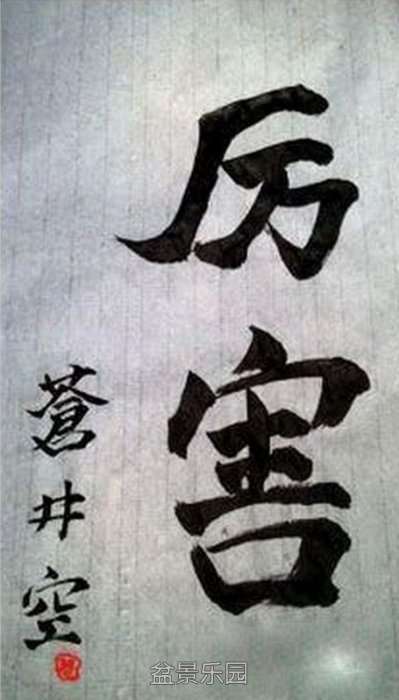 厉害
蒼井空
盆景乐园